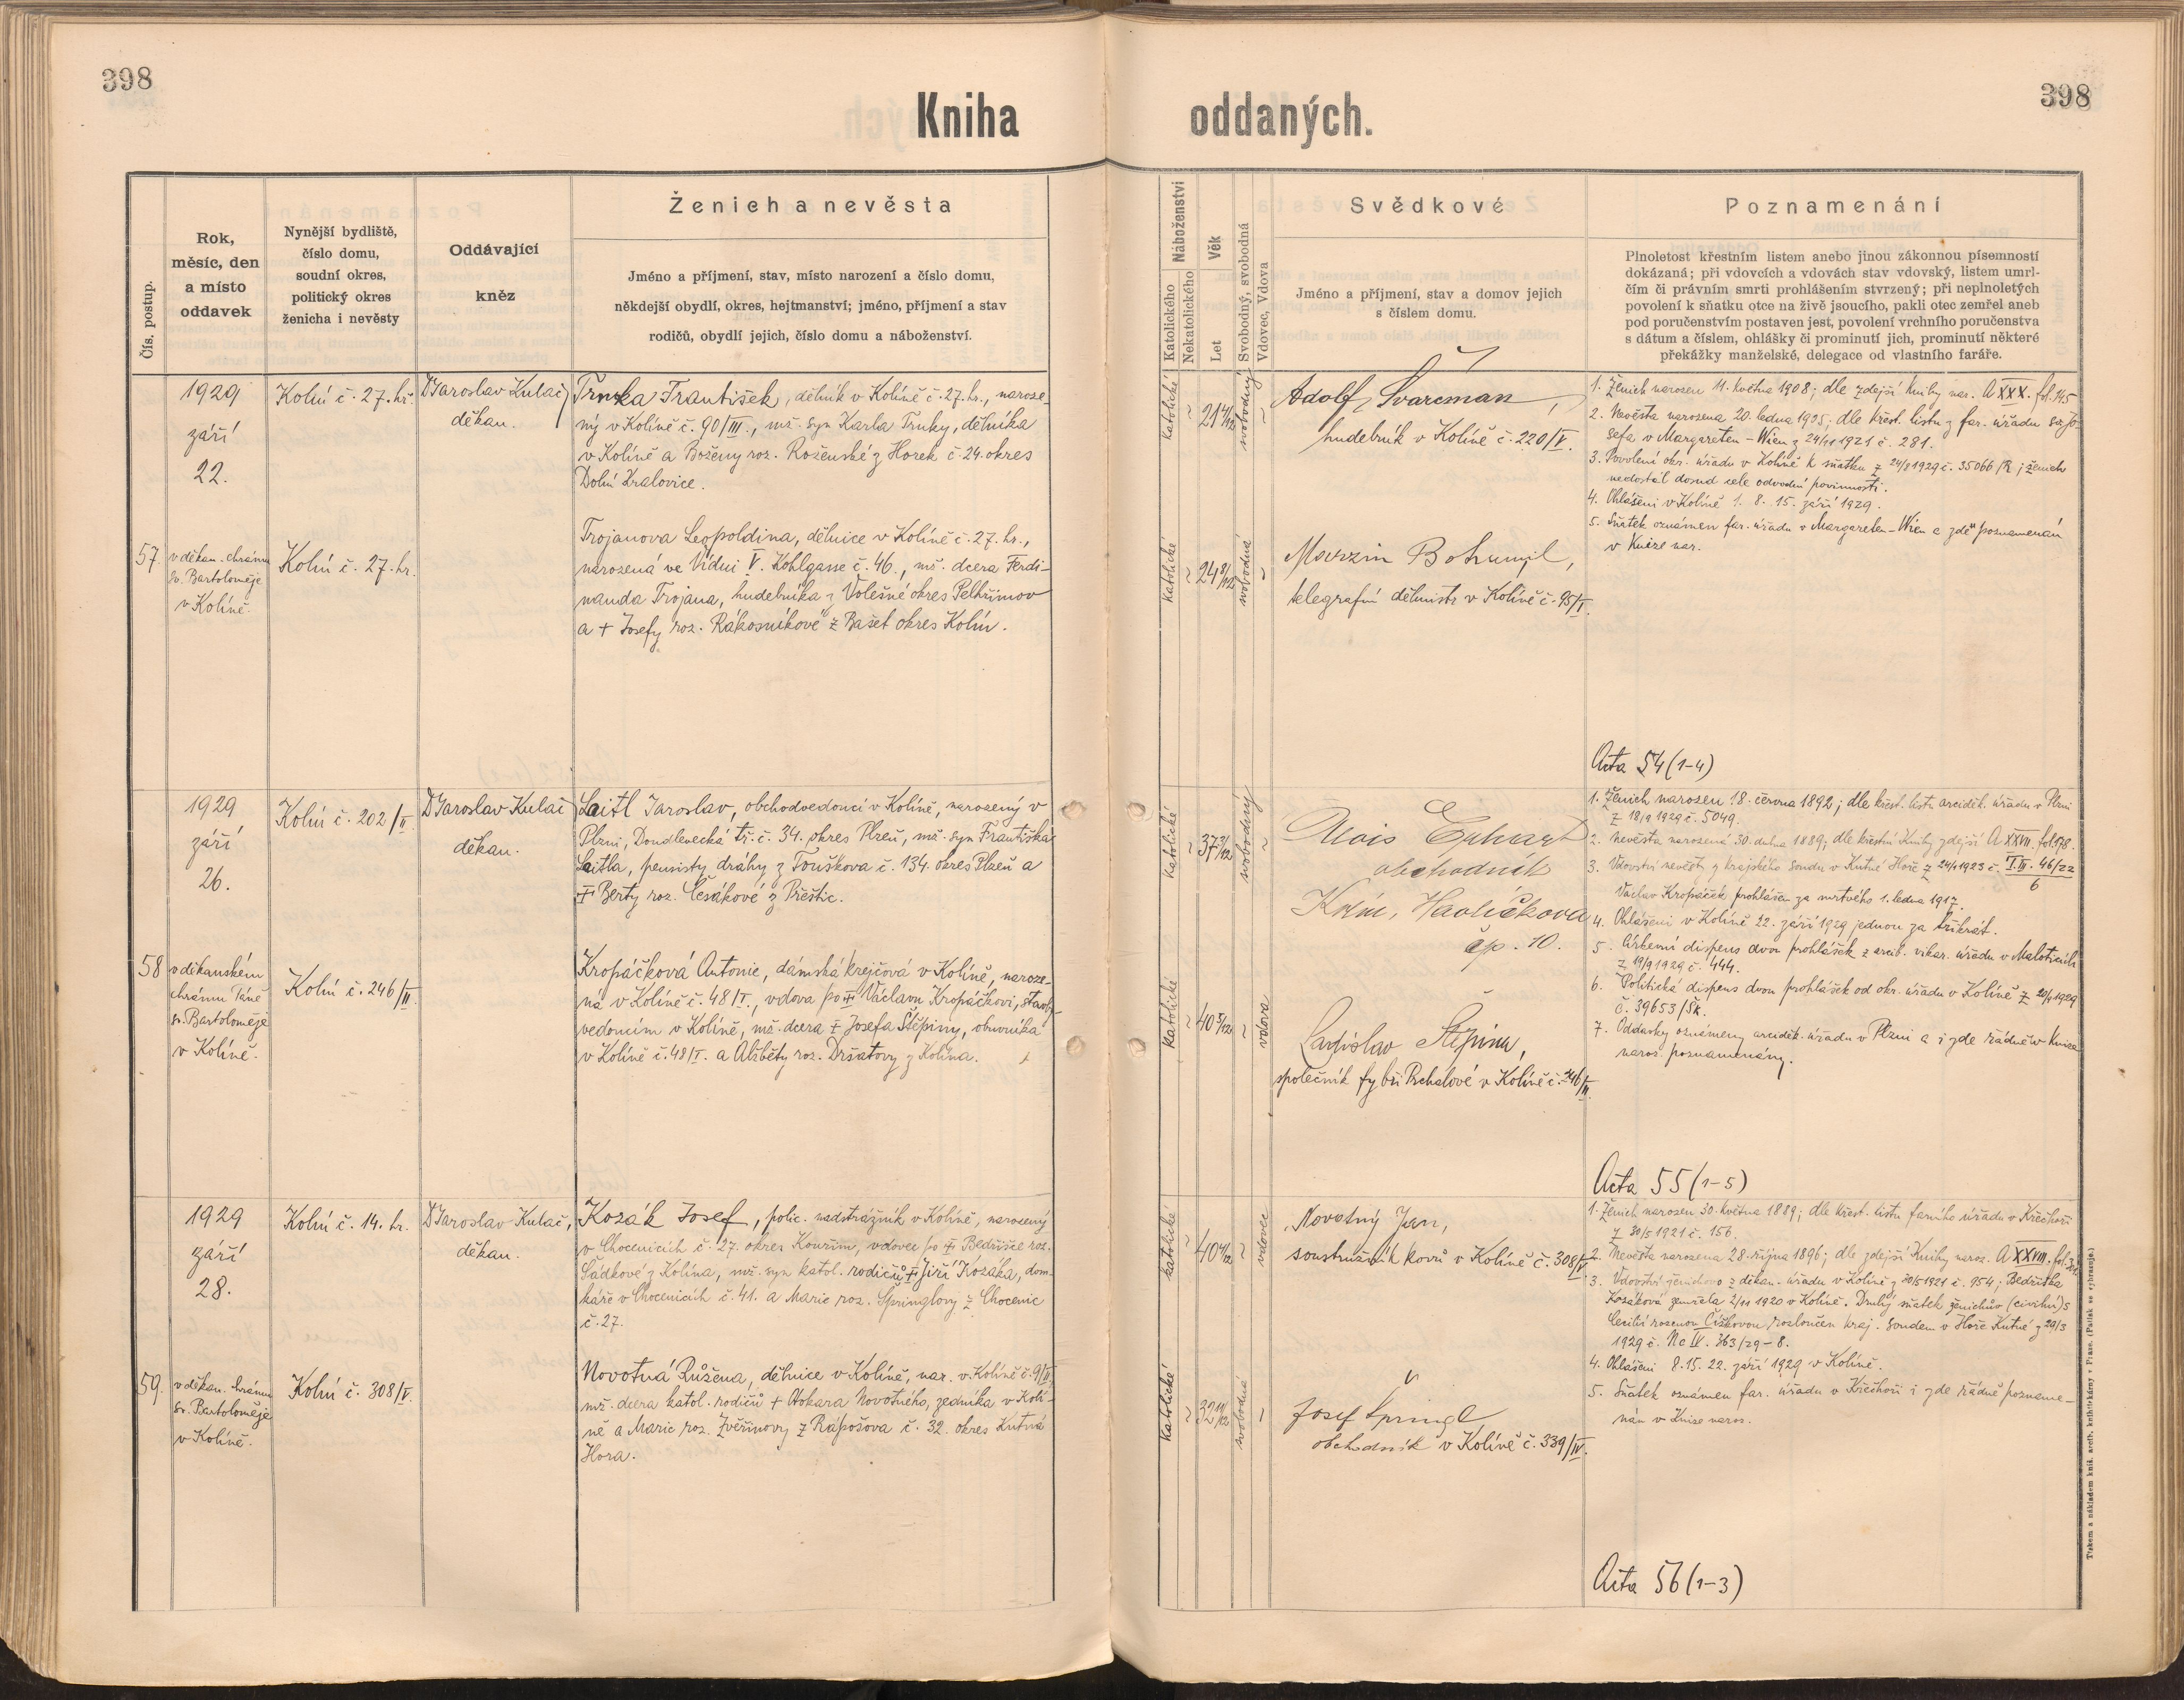 398
398
Kniha oddaných.
Čís. postup.
Rok,
měsíc, den
a místo
oddavek
Nynější bydliště,
číslo domu,
soudní okres,
politický okres
ženicha i nevěsty
Oddávající
kněz
Ženich a nevěsta
Jméno a příjmení, stav, místo narození a číslo domu,
někdejší obydlí, okres, hejtmanství; jméno, příjmení a stav
rodičů, obydlí jejich, číslo domu a náboženství.
Náboženství
Katolického
Nekatolického
Věk
Let
Svobodný, svobodná
Vdovec, Vdova
Svědkové
Jméno a příjmení, stav a domov jejich
s číslem domu.
Poznamenání
Plnoletost křestním listem anebo jinou zákonnou písemností
dokázaná; při vdovcích a vdovách stav vdovský, listem umrl-
čím či právním smrti prohlášením stvrzený; při neplnoletých
povolení k sňatku otce na živě jsoucího, pakli otec zemřel aneb
pod poručenstvím postaven jest, povolení vrchního poručenstva
s dátum a číslem, ohlášky či prominutí jich, prominutí některé
překážky manželské, delegace od vlastního faráře.
57.
1929
září
22.
v děkan. chrámu
sv. Bartoloměje
v Kolíně.
Kolín č. 27. hr.
Kolín č. 27. hr.
Dr Jaroslav Kulač,
děkan.
Trnka František, dělník v Kolíně č. 27. hr., naroze-
ný v Kolíně č. 90/III., mž. syn Karla Trnky, dělníka
v Kolíně a Boženy roz. Roženské z Horek č. 24. okres
Dolní Kralovice.
Trojanova Leopoldina, dělnice v Kolíně č. 27. hr.,
narozená ve Vídni V. Kohlgasse č. 46., mž. dcera Ferdi-
nanda Trojana, hudebníka z Volešné okres Pelhřimov
a + Josefy roz. Rákosníkové z Bašet okres Kolín.
Katolické
~
21 4/12
svobodný
~
Katolické
~
24 8/12
svobodná
~
Adolf Švarcman,
hudebník v Kolíně č. 220/V.
Bohumil,
telegrafní v Kolíně č. 95/I.
1. Ženich narozen 11. května 1908; dle zdejší Knihy nar. A XXX. fol. 145
2. Nevěsta narozena 20. ledna 1905; dle křest. listu z far. úřadu sv. Jo-
sefa v Margareten – Wien z 24/11 1921 č. 281.
3. Povolení okr. úřadu v Kolíně k sňatku z 24/8 1929 č. 35066/R; ženich
nedostál dosud cele odvodní povinnosti.
4. Ohlášeni v Kolíně 1. 8. 15. září 1929.
5. Sňatek oznámen far. úřadu v Margareten – Wien a zde poznamenán
v Knize nar.
Acta 54 (1-4)
58
1929
září
26.
v děkanském
chrámu Páně
sv. Bartoloměje
v Kolíně.
Kolín č. 202/II.
Kolín č. 246/II.
Dr Jaroslav Kulač
děkan.
Laitl Jaroslav, obchodvedoucí v Kolíně, narozený v
Plzni, Doudlevecká tř. č. 34. okres Plzeň, mž. syn Františka
Laitla, pensisty dráhy z Touškova č. 134. okres Plzeň a
+ Berty roz. Česákové z Přeštic.
Kropáčková Antonie, dámská krejčová v Kolíně, naroze-
ná v Kolíně č. 48/I., vdova po + Václavu Kropáčkovi,
vedoucím v Kolíně, mž. dcera + Josefa Štěpiny, obuvníka
v Kolíně č. 48/I. a Alžběty roz. Dršatovy z Kolína.
Katolické
~
37 3/12
svobodný
~
Katolické
~
40 5/12
~
vdova
Alois
obchodník
Kolín, Havlíčkova
čp. 10.
Ladislav Štěpina,
společník fy bří Pchalové v Kolíně č. 246/II.
1. Ženich narozen 18. června 1892; dle křest. listu arciděk. úřadu v Plzni
z 18/9 1929 č. 5049.
2. Nevěsta narozená 30. dubna 1889; dle křestní Knihy zdejší A XXVII. fol. 178.
3. Vdovství nevěsty z krajského soudu v Kutné Hoře z 24/1 1923 č. T. VI. 46/22
6
Václav Kropáček prohlášen za mrtvého 1. ledna 1917.
4. Ohlášeni v Kolíně 22. září 1929 jednou za třikrát.
5. Církevní dispens dvou prohlášek z arcib. vikar. úřadu v Maloticích
z 19/9 1929 č. 444.
6. Politická dispens dvou prohlášek od okr. úřadu v Kolíně z 20/9 1929
č. 39653/Šk.
7. Oddavky oznámeny arciděk. úřadu v Plzni a i zde řádně v Knize
naroz. poznamenány.
Acta 55 (1-5)
59.
1929
září
28.
v děkan. chrámu
sv. Bartoloměje
v Kolíně.
Kolín č. 14. hr.
Kolín č. 308/V.
Dr Jaroslav Kulač,
děkan.
Kozák Josef, polic. nadstrážník v Kolíně, narozený
v Chocenicích č. 27. okres Kouřim, vdovec po + Bedřišce roz.
Sádkové z Kolína, mž. syn katol. rodičů + Jiří Kozáka, dom-
káře v Chocenicích č. 41. a Marie roz. Špringlovy z Chocenic
č. 27.
Novotná Růžena, dělnice v Kolíně, nar. v Kolíně č. 9/II
mž. dcera katol. rodičů + Otokara Novotného, zedníka v Kolí-
ně a Marie roz. Zvěřinovy z Rápošova č. 32. okres Kutná
Hora.
katolické
~
40 4/12
~
vdovec
Katolické
~
32 11/12
svobodná
~
Novotný Jan,
soustružník kovů v Kolíně č. 308/V.
Josef Špringl
obchodník v Kolíně č. 339/IV.
1. Ženich narozen 30. května 1889; dle křest. listu farního úřadu v Křečhoři
z 30/5 1921 č. 156.
2. Nevěsta narozena 28. října 1896; dle zdejší Knihy naroz. A XXVIII. fol.
3. Vdovství ženichovo z děkan. úřadu v Kolíně z 30/5 1921 č. 954; Bedřiška
Kozáková zemřela 2/11 1920 v Kolíně. Druhý sňatek ženichův (civilní) s
Cecilií rozenou Čížkovou rozloučen kraj. soudem v Hoře Kutné z 29/3
1929 č. Nc IV. 363/29 – 8.
4. Ohlášeni 8. 15. 22. září 1929 v Kolíně.
5. Sňatek oznámen far. úřadu v Křečhoři i zde řádně pozname-
nán v Knize naroz.
Acta 56 (1-3)
Tiskem a nákladem kníž. arcib. knihtiskárny v Praze. (Patisk se vyhrazuje.)